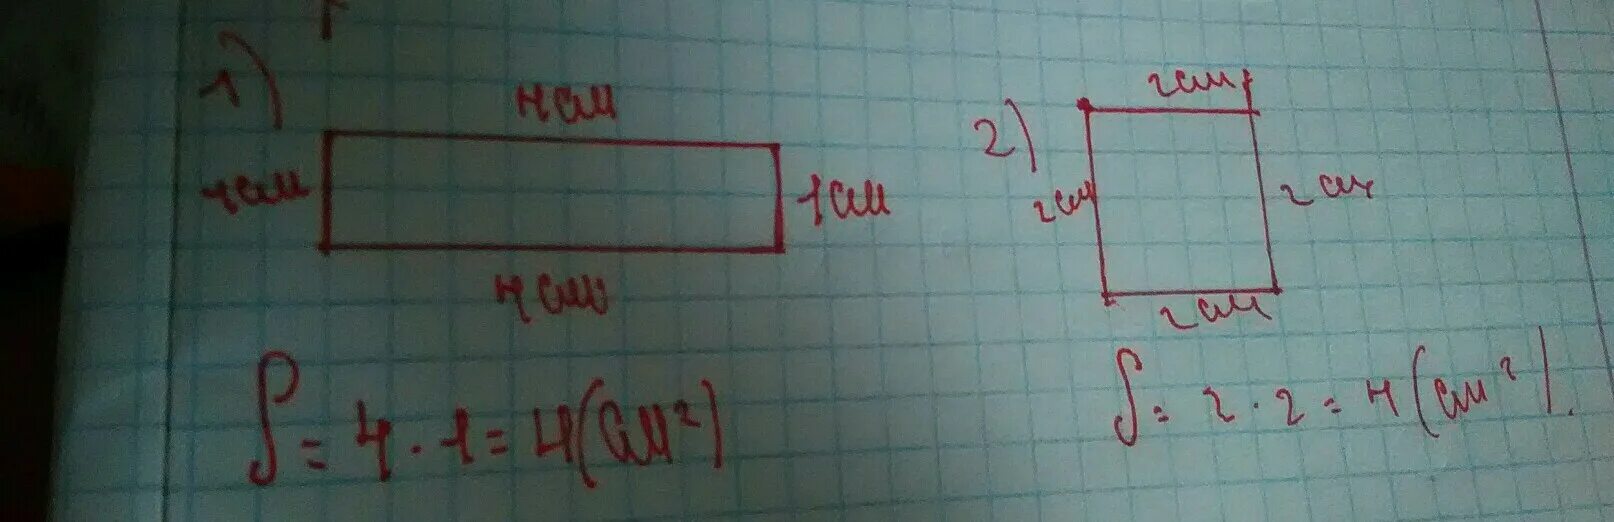 1)
4 см
1 см
1 см
4 см
S = 4 · 1 = 4 (см²)
2)
2 см
2 см
2 см
2 см
S = 2 · 2 = 4 (см²).